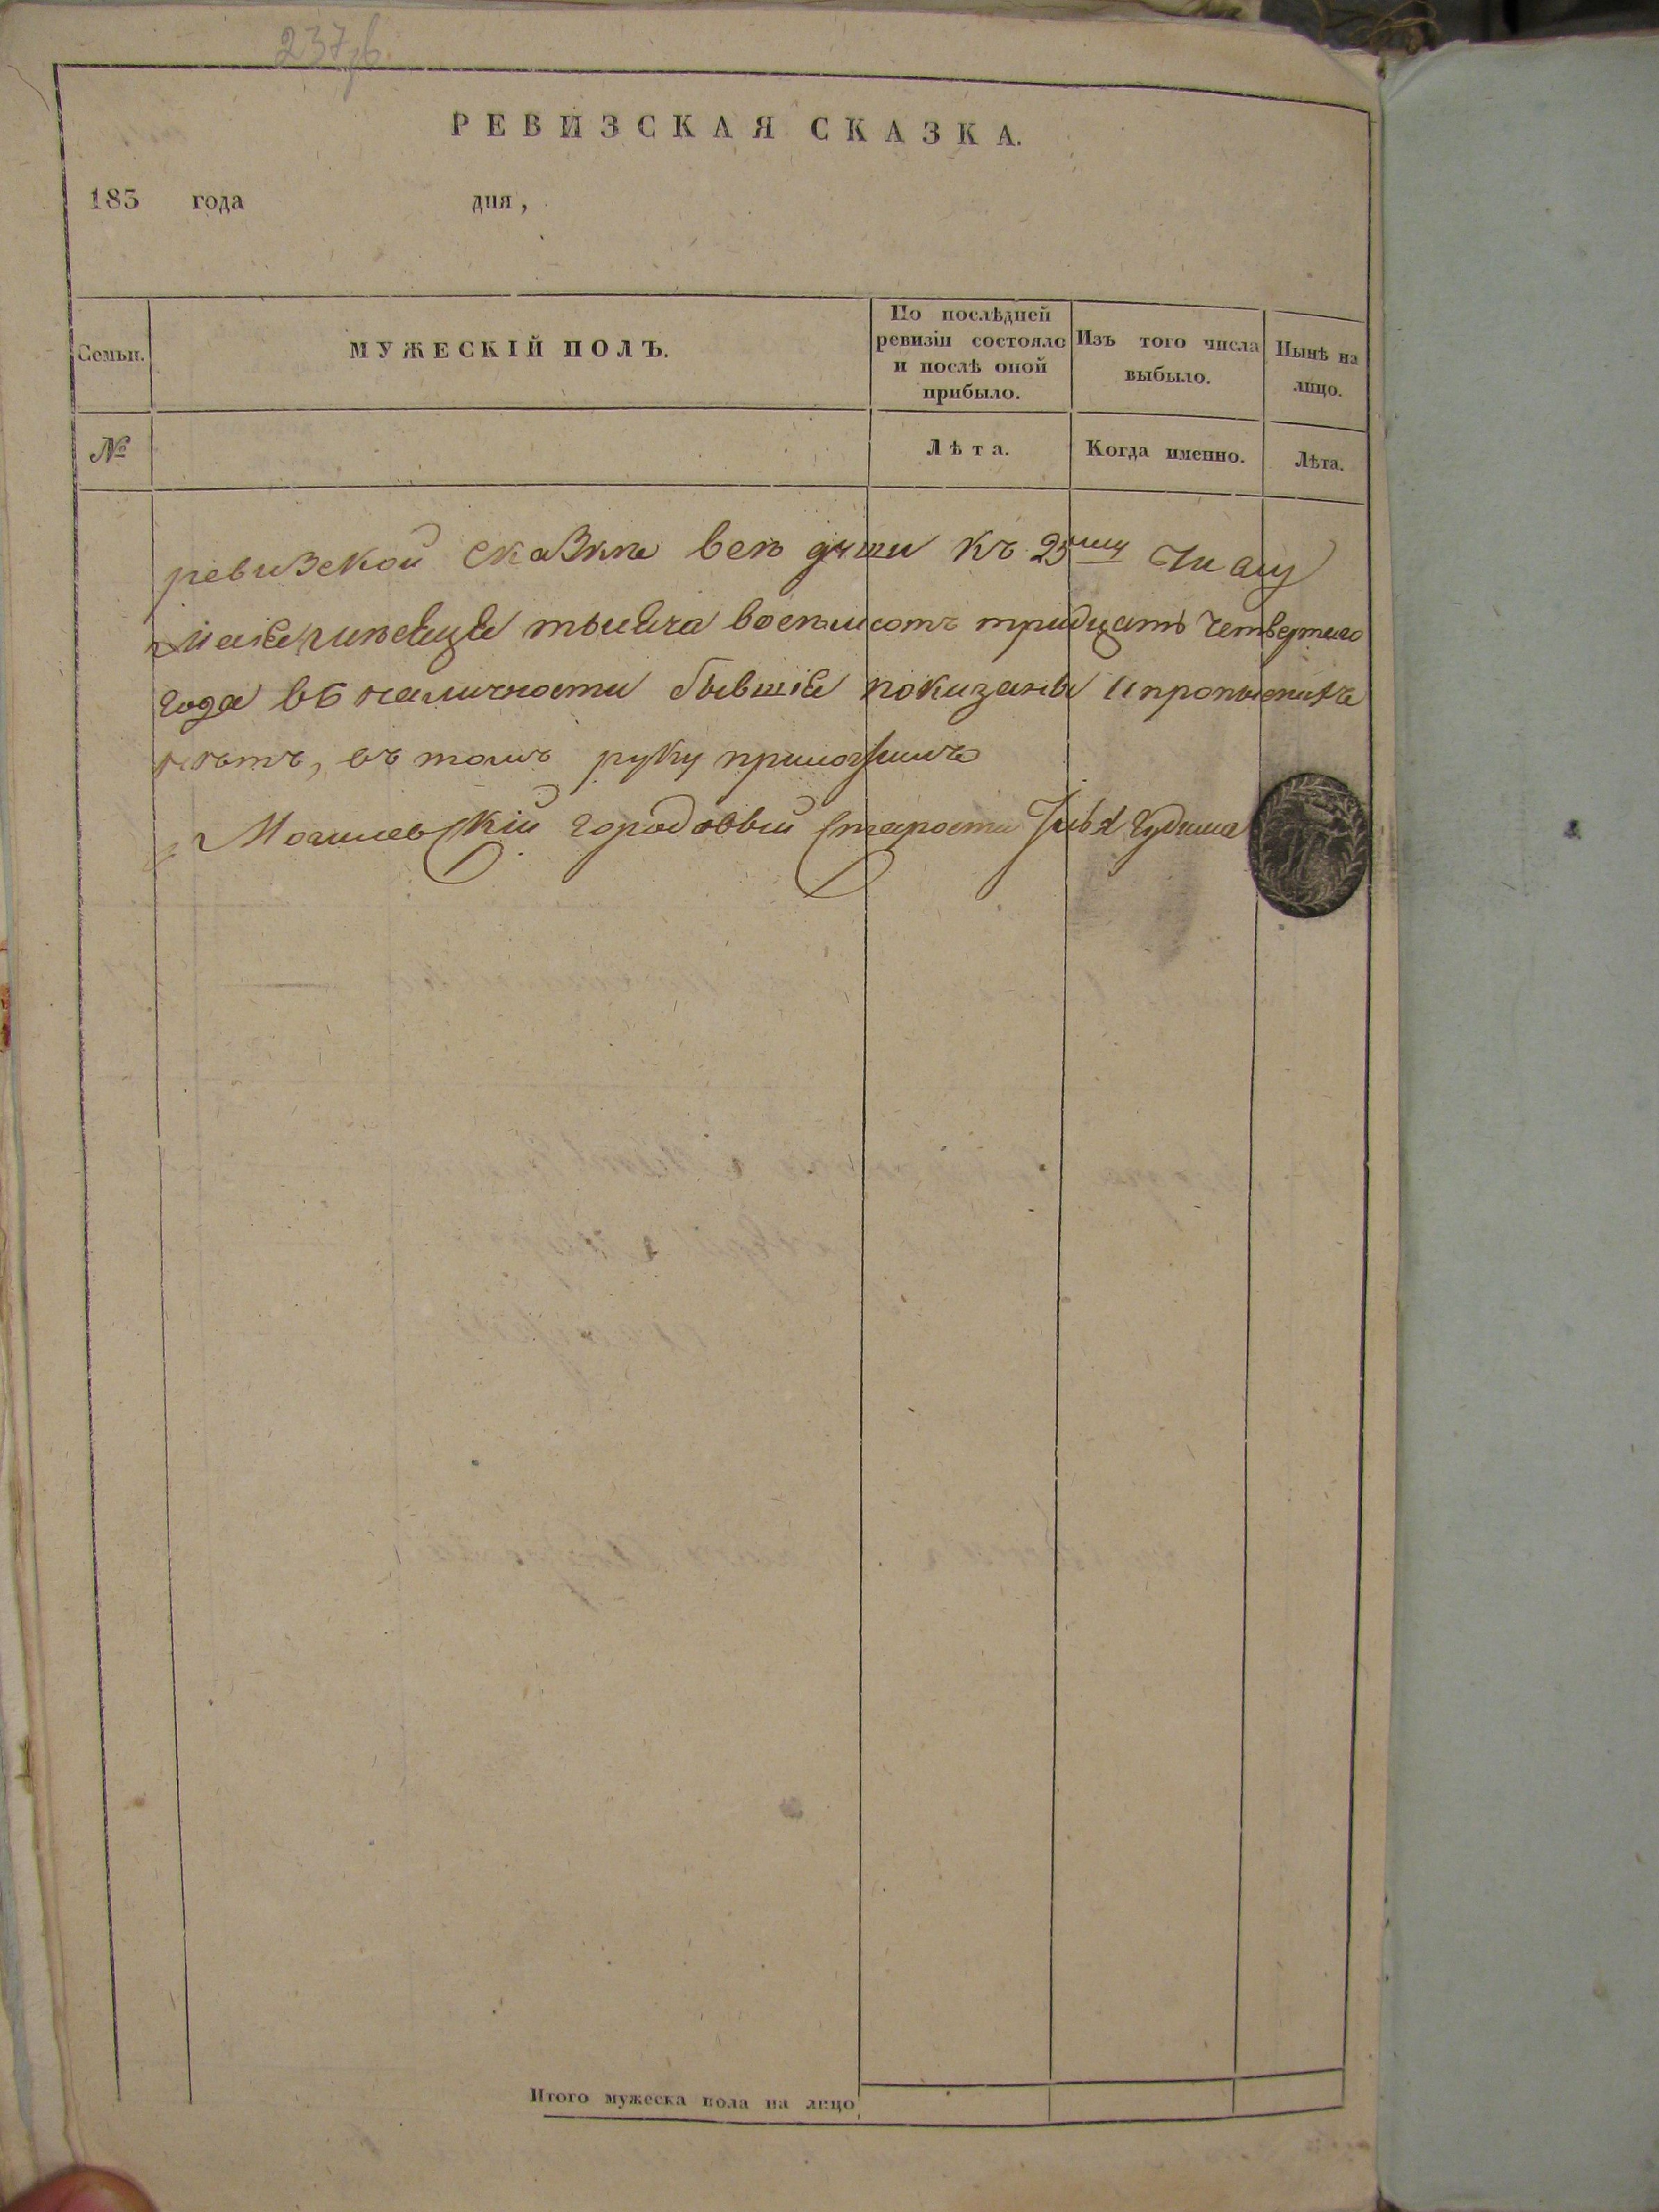 237об.
РЕВИЗСКАЯ СКАЗКА.
183 года дня,
Семьи.
МУЖЕСКІЙ ПОЛЪ.
По послѣдней ревизіи состояло и послѣ оной прибыло.
Изъ того числа выбыло.
Нынѣ на лицо.
№
Лѣта.
Когда именно.
Лѣта.
ревизской сказке все души къ 25му Числу
тысеча восемьсотъ тридцать четвертаго
года въ наличности бывшіе показаны и пропысныхъ
нѣтъ, въ томъ руку приложилъ
Могилевскій городовый Староста
Итого мужеска пола на лицо